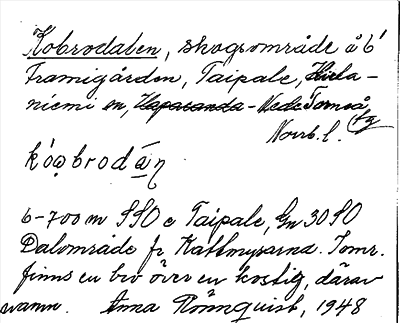 Kobrodalen, skogsområde å b'
Framigården, Taipale, Hieta-
niemi sn, Haparanda - Neder Torneå
Norrb. l. fg
kóǫbrodáη
6-700 m SSO e Taipale, Gn 30 SO
Dalområde fr Kattmyrarna. Tomr.
finns en bro över en kostig, därav
namn. Anna Rönnquist, 1948